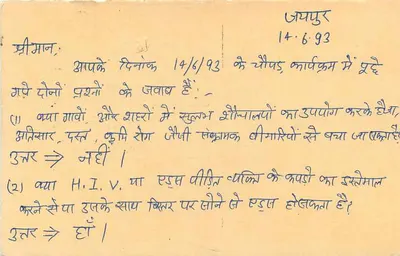 जयपुर
14.6.93
श्रीमान,
आपके दिनांक 14/6/93 के चौपड़ कार्यक्रम में पूछे
गये दोनों प्रश्नों के जवाब हैं:-
(1) क्या गावों और शहरों में सुलभ शौचालयों का उपयोग करके हैजा,
अतिसार, दस्त, कृमि रोग जैसी संक्रामक बीमारियों से बचा जा सकता है
उत्तर ⇒ नहीं।
(2) क्या H.I.V. या एड्स पीड़ित व्यक्ति के कपड़ों का इस्तेमाल
करने से या उसके साथ बिस्तर पर सोने से एड्स हो सकता है?
उत्तर ⇒ हाँ।